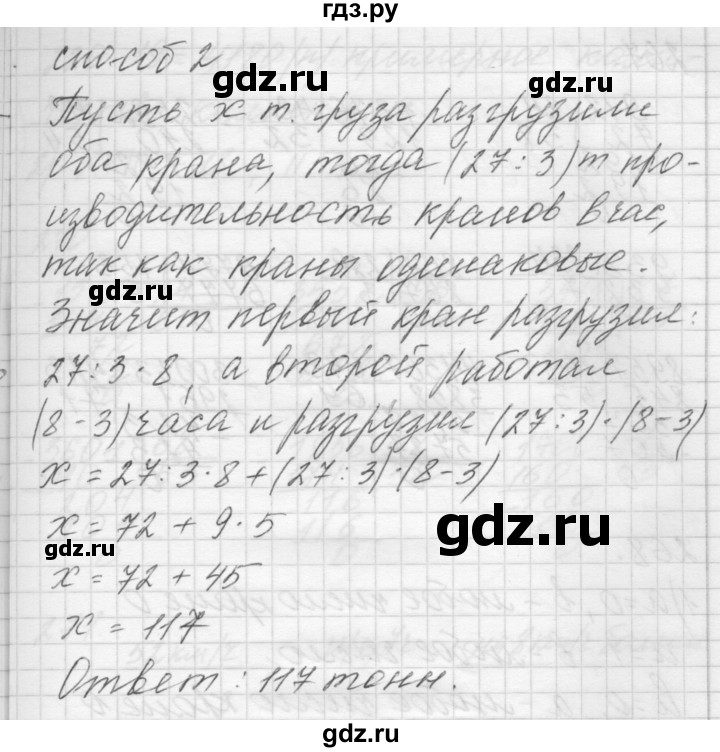 гдз.ру
способ 2
gdz.ru
Пусть х т. груза разгрузили
оба крана, тогда (27:3) т про-
изводительность кранов в час,
так как краны одинаковые.
gdz.ru
Значит первый кран разгрузил:
27:3·8, а второй работал
(8-3) часа и разгрузил (27:3)·(8-3)
х = 27:3·8+(27:3)·(8-3)
х = 72 + 9·5
gdz.ru
gdz.ru
х = 72 + 45
х = 117
Ответ: 117 тонн.
gdz.ru